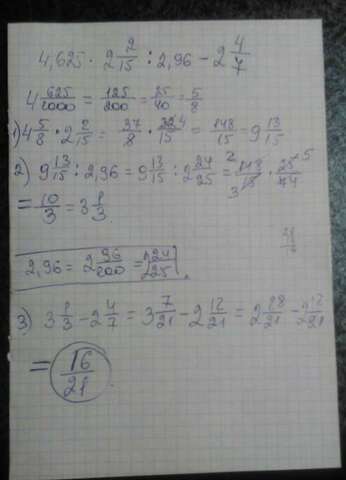 4,625 · 2 2/15 : 2,96 − 2 4/7
4 625/1000 = 125/200 = 25/40 = 5/8
1) 4 5/8 · 2 2/15 = 37/8 · 32 4/15 = 148/15 = 9 13/15
2) 9 13/15 : 2,96 = 9 13/15 : 2 24/25 = 2 148/3 15 · 25 5/74
= 10/3 = 3 1/3.
2,96 = 2 96/100 = 2 24/25.
3) 3 1/3 − 2 4/7 = 3 7/21 − 2 12/21 = 2 28/21 − 2 12/21
= 16/21.